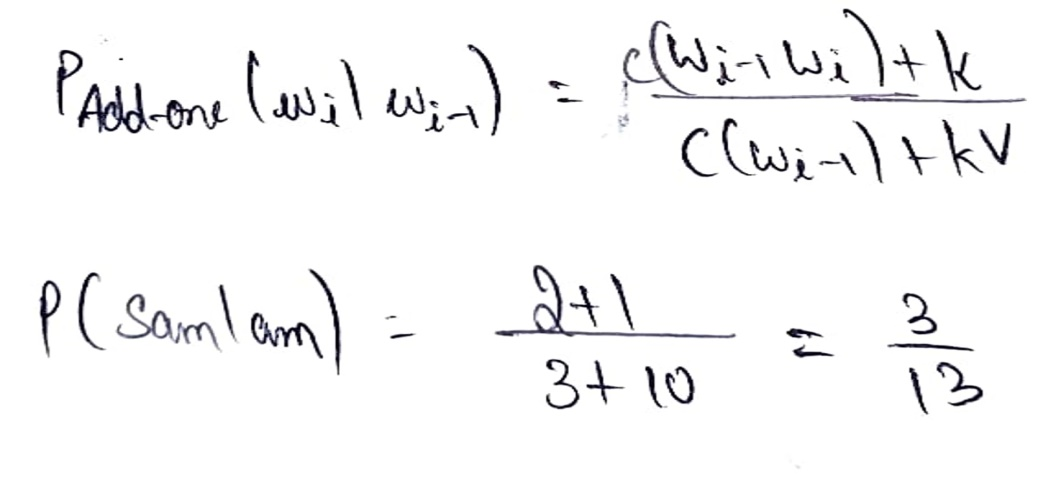 P Add-one (wi | wi-1) = c(wi-1 wi) + k / C(wi-1) + kV
P(Sam | am) = 2+1 / 3+10 = 3 / 13